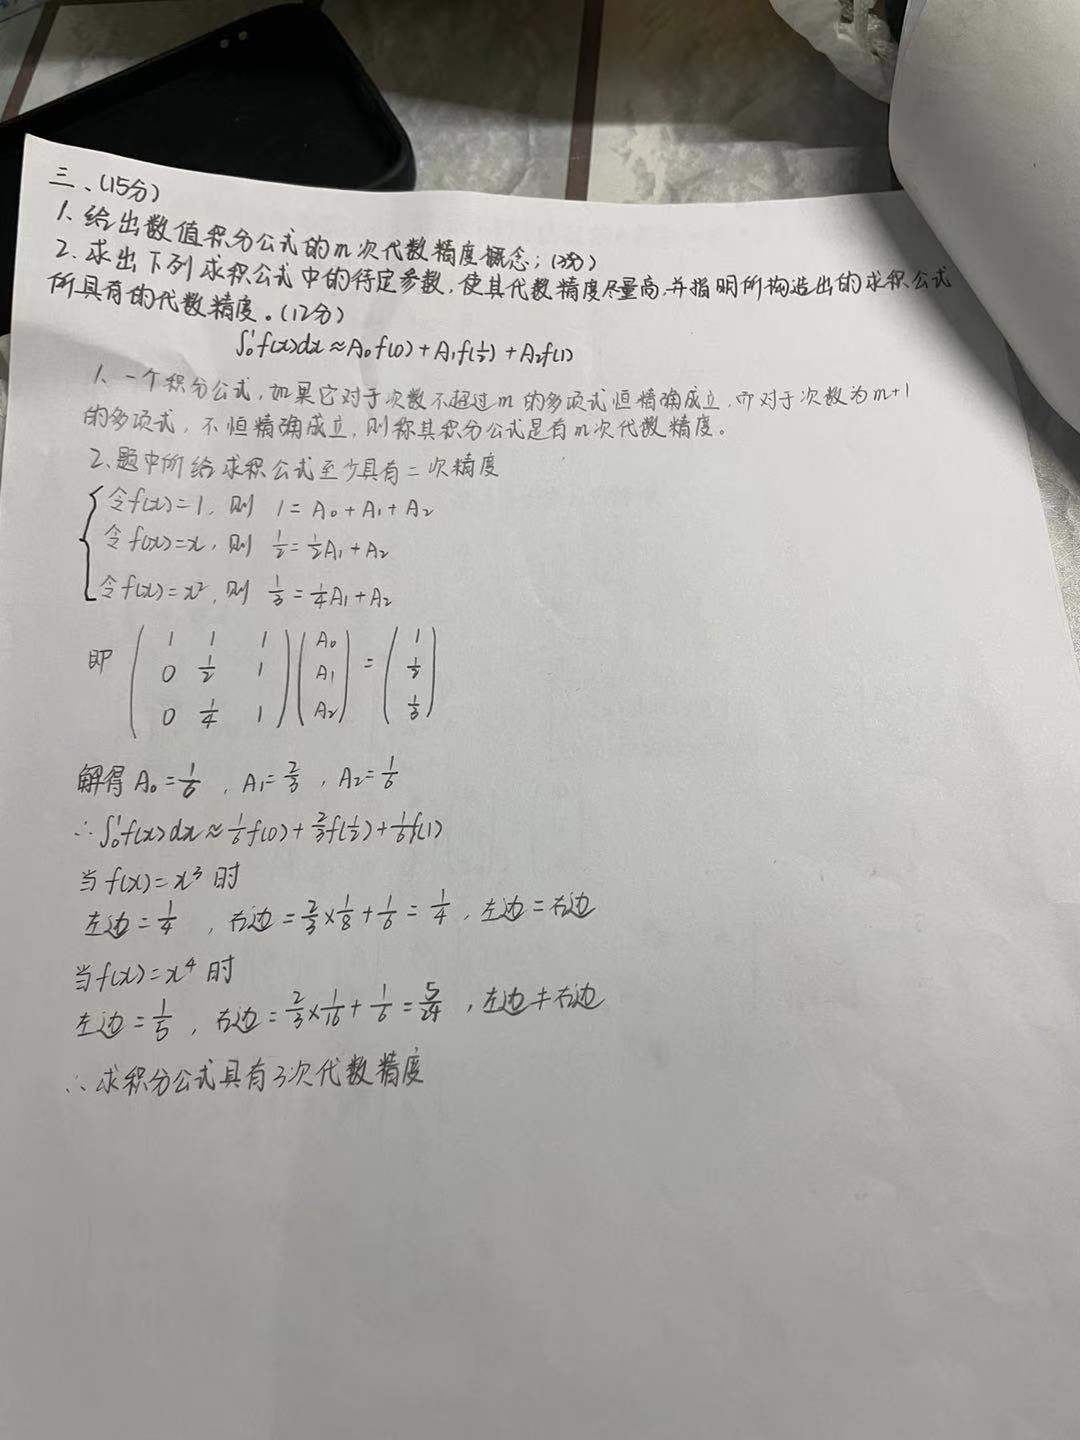 三、(15分)
1、给出数值积分公式的m次代数精度概念；(3分)
2、求出下列求积公式中的待定参数,使其代数精度尽量高,并指明所构造出的求积公式
所具有的代数精度。(12分)
∫₀¹f(x)dx≈A₀f(0)+A₁f(½)+A₂f(1)
1、一个积分公式,如果它对于次数不超过m的多项式恒精确成立,而对于次数为m+1
的多项式,不恒精确成立,则称其积分公式是有m次代数精度。
2、题中所给求积公式至少具有二次精度
令f(x)=1,则 1=A₀+A₁+A₂
令f(x)=x,则 1/2=1/2A₁+A₂
令f(x)=x²,则 1/3=1/4A₁+A₂
即 (1 1 1; 0 1/2 1; 0 1/4 1)(A₀; A₁; A₂)=(1; 1/2; 1/3)
解得A₀=1/6,A₁=2/3,A₂=1/6
∴∫₀¹f(x)dx≈1/6f(0)+2/3f(1/2)+1/6f(1)
当f(x)=x³时
左边=1/4,右边=2/3×1/8+1/6=1/4,左边=右边
当f(x)=x⁴时
左边=1/5,右边=2/3×1/16+1/6=5/24,左边≠右边
∴求积分公式具有3次代数精度